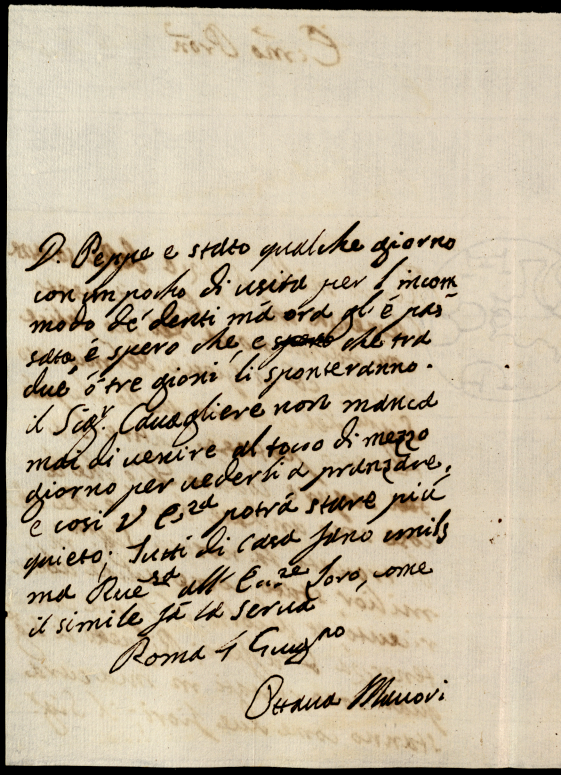 D. Peppe e stato qualche giorno
con un pocho di usita per l'incom
modo de denti má ora gl'é pas
sata é spero che, e spero che tra
dué ó tre gioni li sponteranno.
il Sigr. Cavagliere non manca
mai di venire al tocco di mezzo
giorno per vederli a pranzare,
e cosi V Eza potrá stare piú
quieto; Tutti di Casa fano umils
ma Rueza all' Ecze Loro, come
il simile fá la serva
Roma 4 Giugno
Ottavia